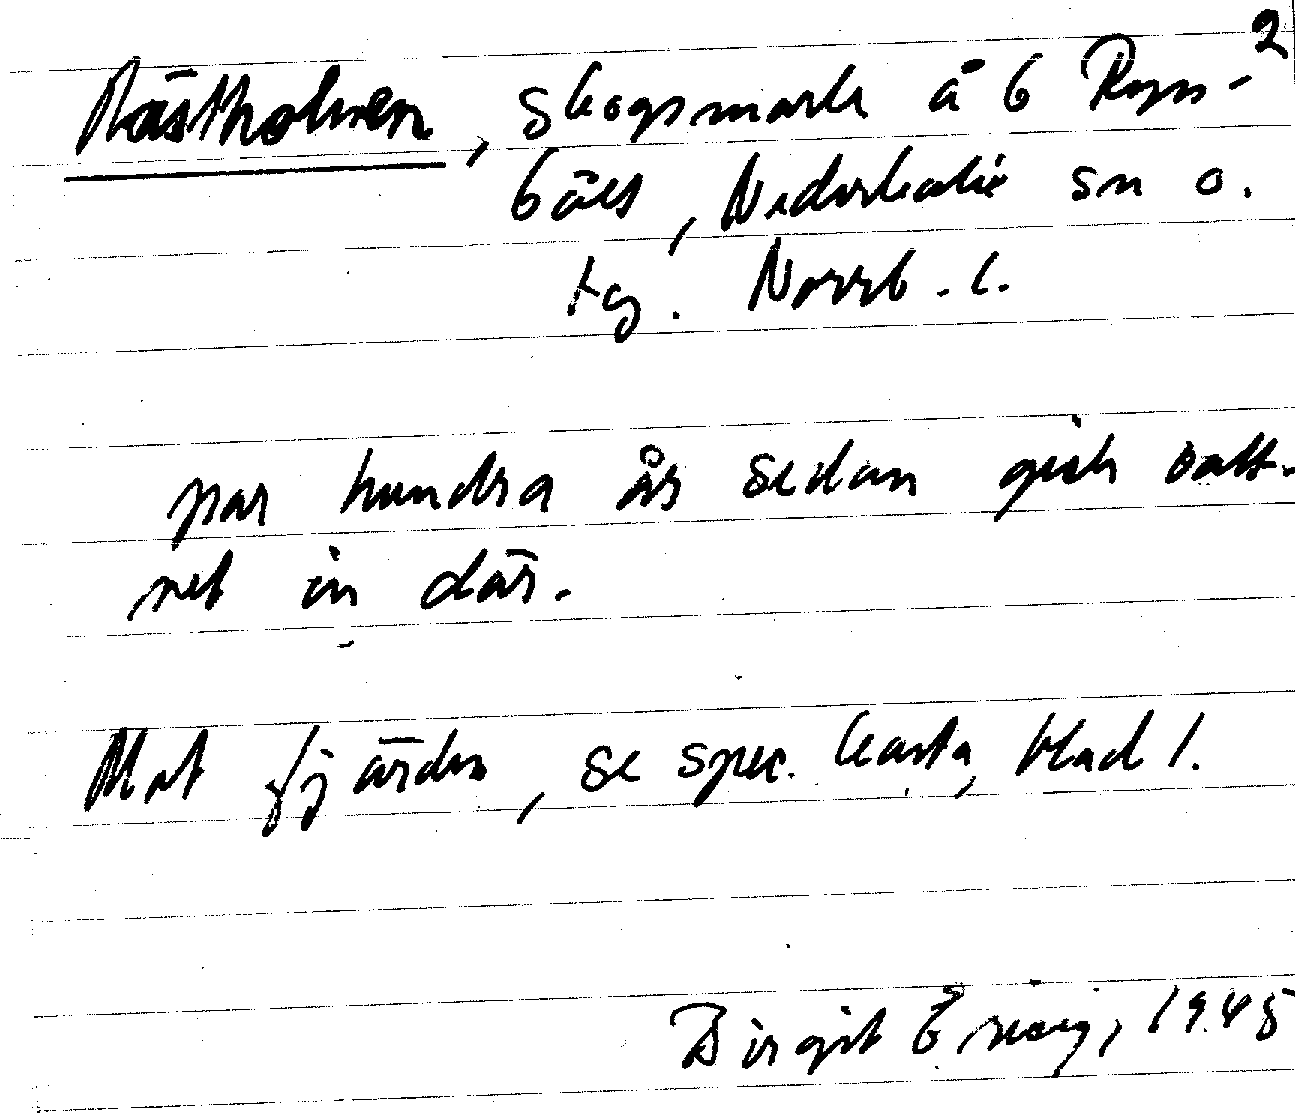 Rästholmen, skogsmark å 6 Ryss- 2
bält, Nederkalix sn o.
tg. Norrb. l.
par hundra år sedan gick vatt-
net in där.
Mot fjärden, se spec. karta, blad 1.
Birgit 1945